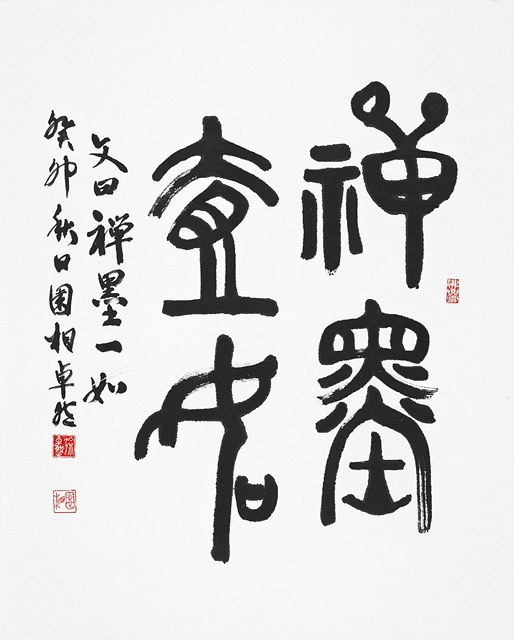 禪墨
壹如
文曰禪墨一如
癸卯秋日圓相卓然